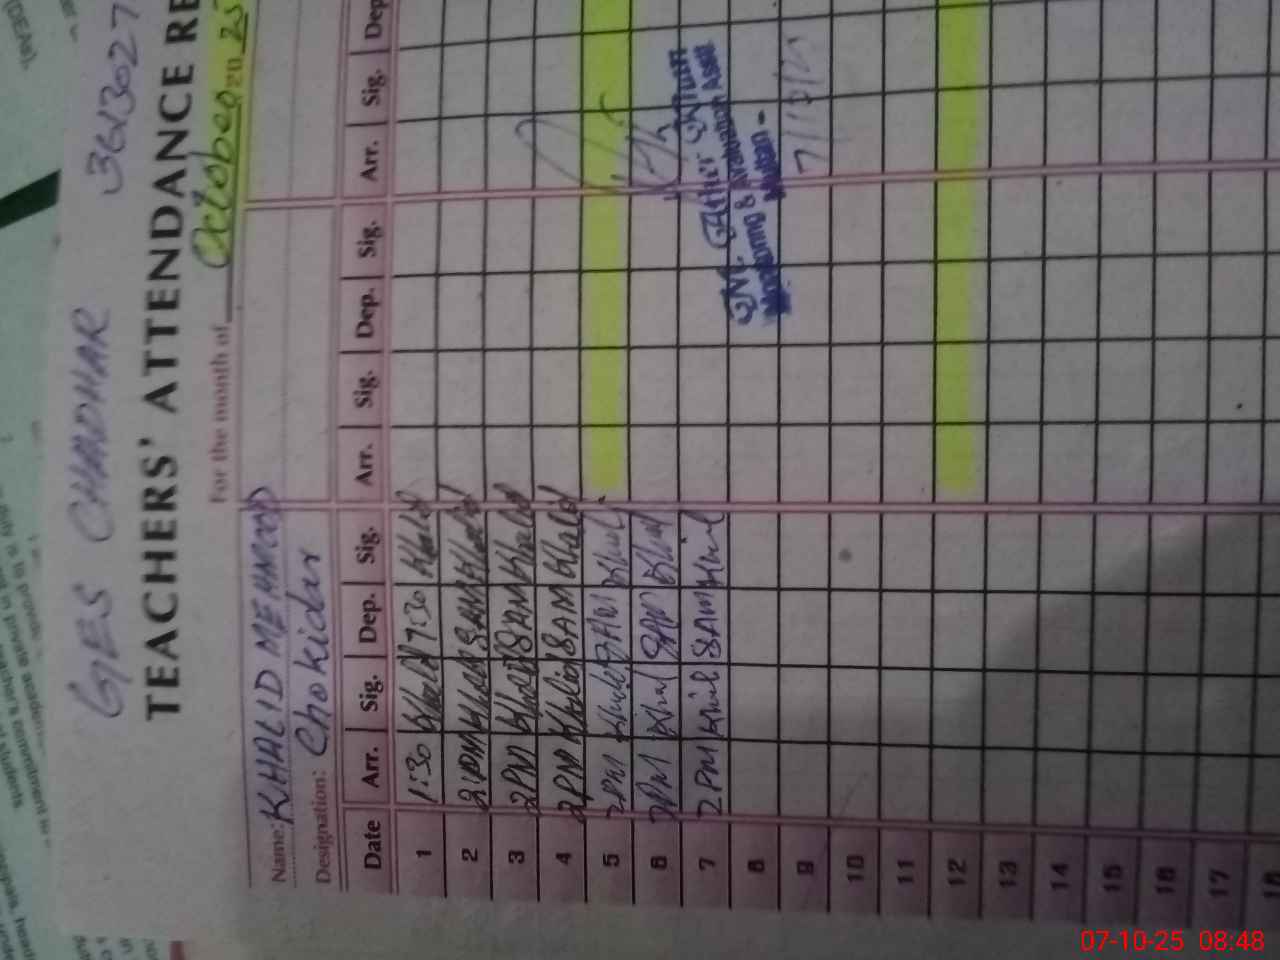 GES CHADHAR 3613027
TEACHERS' ATTENDANCE RE
For the month of October 20 25
Name: KHALID MEHMOOD
Designation: Chokidar
Date Arr. Sig. Dep. Sig. Arr. Sig. Dep. Sig. Arr. Sig. Dep.
1 1:30 Khalid 7:30 Khalid
2 2 PM Khalid 8 AM Khalid
3 2 PM Khalid 8 AM Khalid
4 2 PM Khalid 8 AM Khalid
5 2 PM Khalid 8 AM Khalid
6 2 PM Khalid 8 AM Khalid
7 2 PM Khalid 8 AM Khalid
8
9
10
11
12
13
14
15
16
17
18
Monitoring & Evaluation Asstt
7/10/25
(DEA).
07-10-25 08:48